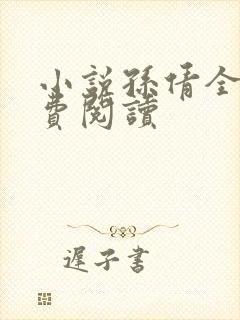 小說孫倩全
費閱讀
遲子書